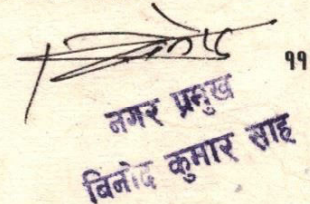 ११
नगर प्रमुख
बिनोद कुमार साह